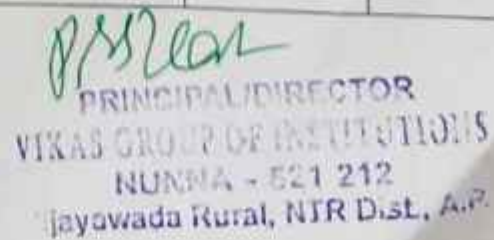 PRINCIPAL/DIRECTOR
VIKAS GROUP OF INSTITUTIONS
NUNNA - 521 212
ijayawada Rural, NTR Dist., A.P.